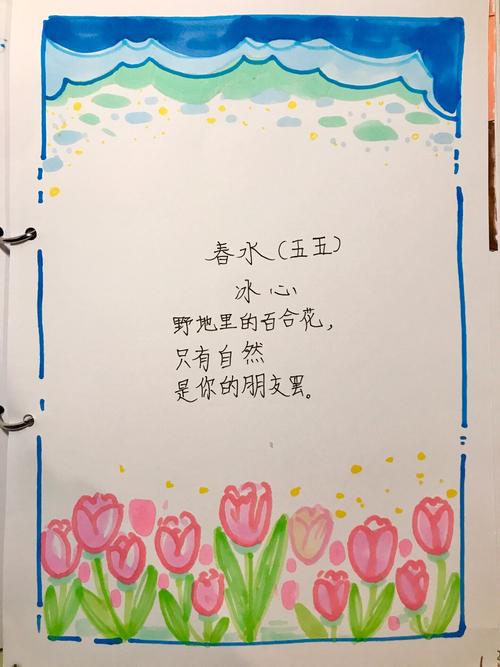 春水（五五）
冰心
野地里的百合花，
只有自然
是你的朋友罢。